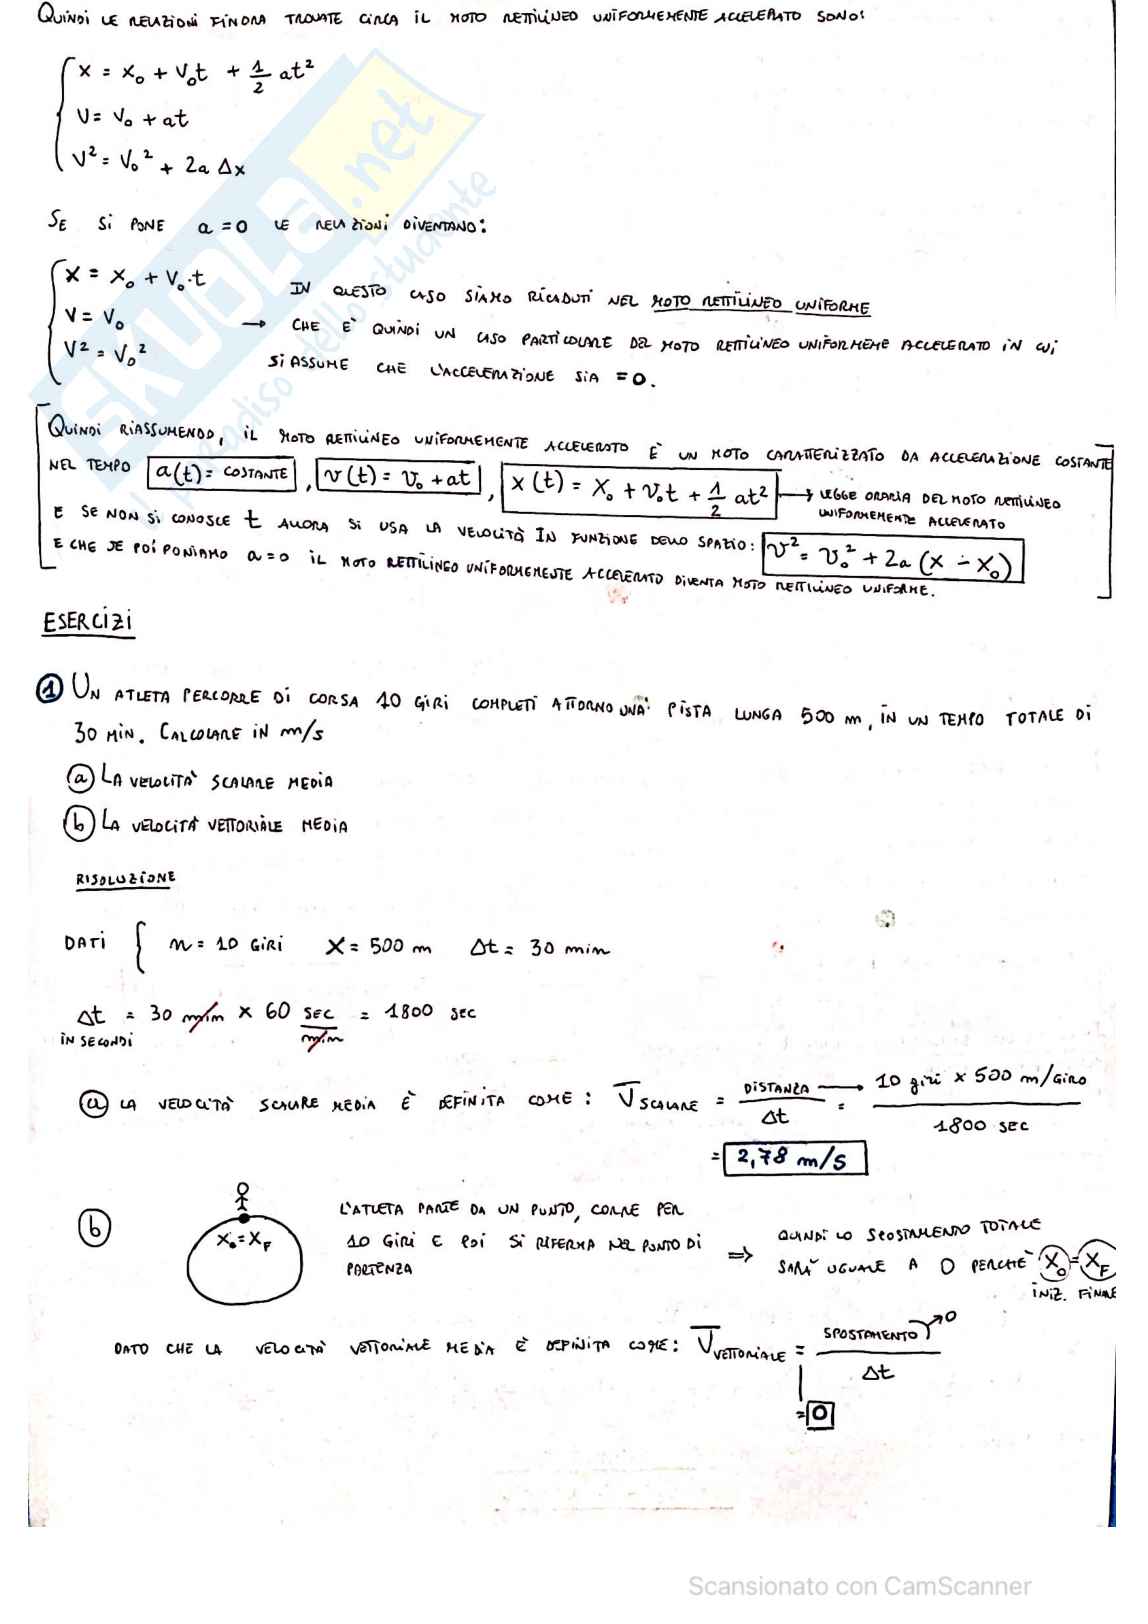 QUINDI LE RELAZIONI FINORA TROVATE CIRCA IL MOTO RETTILINEO UNIFORMEMENTE ACCELERATO SONO:
x = x₀ + v₀t + 1/2 at²
v = v₀ + at
v² = v₀² + 2a Δx
SE SI PONE a = 0 LE RELAZIONI DIVENTANO:
x = x₀ + v₀·t
v = v₀
v² = v₀²
IN QUESTO CASO SIAMO RICADUTI NEL MOTO RETTILINEO UNIFORME
→ CHE E' QUINDI UN CASO PARTICOLARE DEL MOTO RETTILINEO UNIFORMEME ACCELERATO IN CUI
SI ASSUME CHE L'ACCELERAZIONE SIA = 0.
QUINDI RIASSUMENDO, IL MOTO RETTILINEO UNIFORMEMENTE ACCELERATO È UN MOTO CARATTERIZZATO DA ACCELERAZIONE COSTANTE
NEL TEMPO a(t) = COSTANTE, v(t) = v₀ + at, x(t) = x₀ + v₀t + 1/2 at² → LEGGE ORARIA DEL MOTO RETTILINEO
UNIFORMEMENTE ACCELERATO
E SE NON SI CONOSCE t ALLORA SI USA LA VELOCITÀ IN FUNZIONE DELLO SPAZIO: v² = v₀² + 2a (x - x₀)
E CHE SE POI PONIAMO a = 0 IL MOTO RETTILINEO UNIFORMEMENTE ACCELERATO DIVENTA MOTO RETTILINEO UNIFORME.
ESERCIZI
1 UN ATLETA PERCORRE DI CORSA 10 GIRI COMPLETI ATTORNO UNA PISTA LUNGA 500 m, IN UN TEMPO TOTALE DI
30 MIN. CALCOLARE IN m/s
a LA VELOCITÀ SCALARE MEDIA
b LA VELOCITÀ VETTORIALE MEDIA
RISOLUZIONE
DATI { n = 10 GIRI X = 500 m Δt = 30 min
Δt = 30 min × 60 SEC/min = 1800 sec
IN SECONDI
a LA VELOCITÀ SCALARE MEDIA È DEFINITA COME: V̅ SCALARE = DISTANZA/Δt → = 10 giri × 500 m/GIRO / 1800 SEC
= 2,78 m/s
b
X₀ = X_F
L'ATLETA PARTE DA UN PUNTO, CORRE PER
10 GIRI E POI SI RIFERMA NEL PUNTO DI
PARTENZA
⇒ QUINDI LO SPOSTAMENTO TOTALE
SARÀ UGUALE A 0 PERCHÈ X₀ = X_F
INIZ. FINALE
DATO CHE LA VELOCITÀ VETTORIALE MEDIA È DEFINITA COME: V̅ VETTORIALE = SPOSTAMENTO/Δt → 0
= 0
SKUOLA.net
il paradiso dello studente
Scansionato con CamScanner